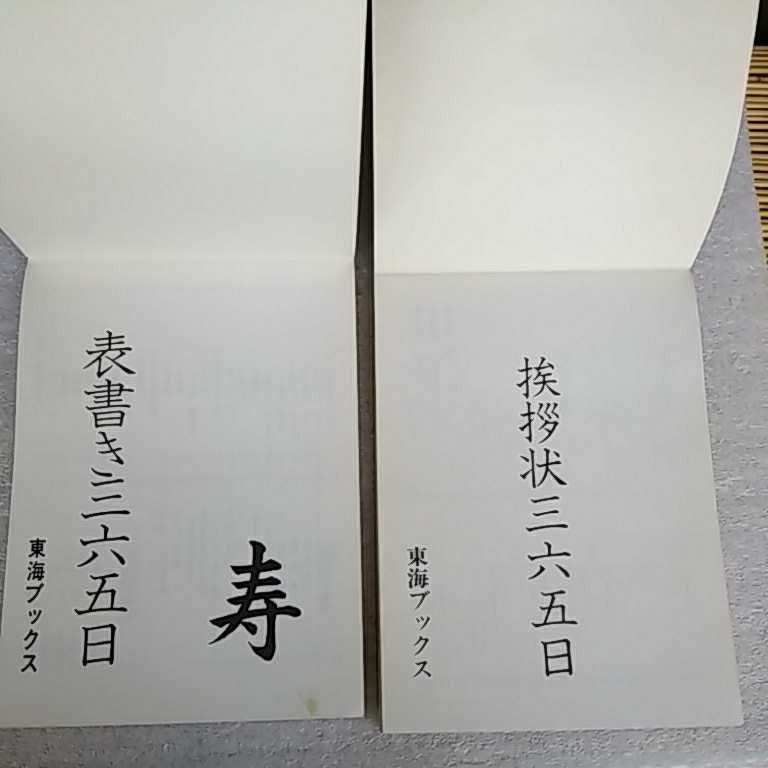 表書き三六五日
東海ブックス
寿
挨拶状三六五日
東海ブックス